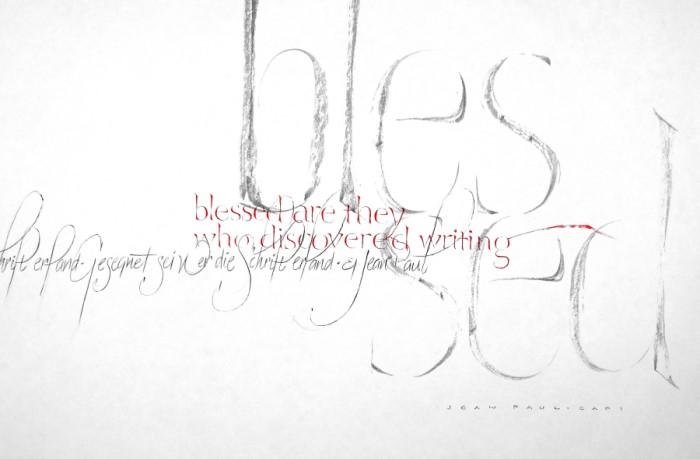 bles
blessed are they
who discovered writing
hrift erfand · Gesegnet sei wer die Schrift erfand · Jean Paul
sed
JEAN PAUL